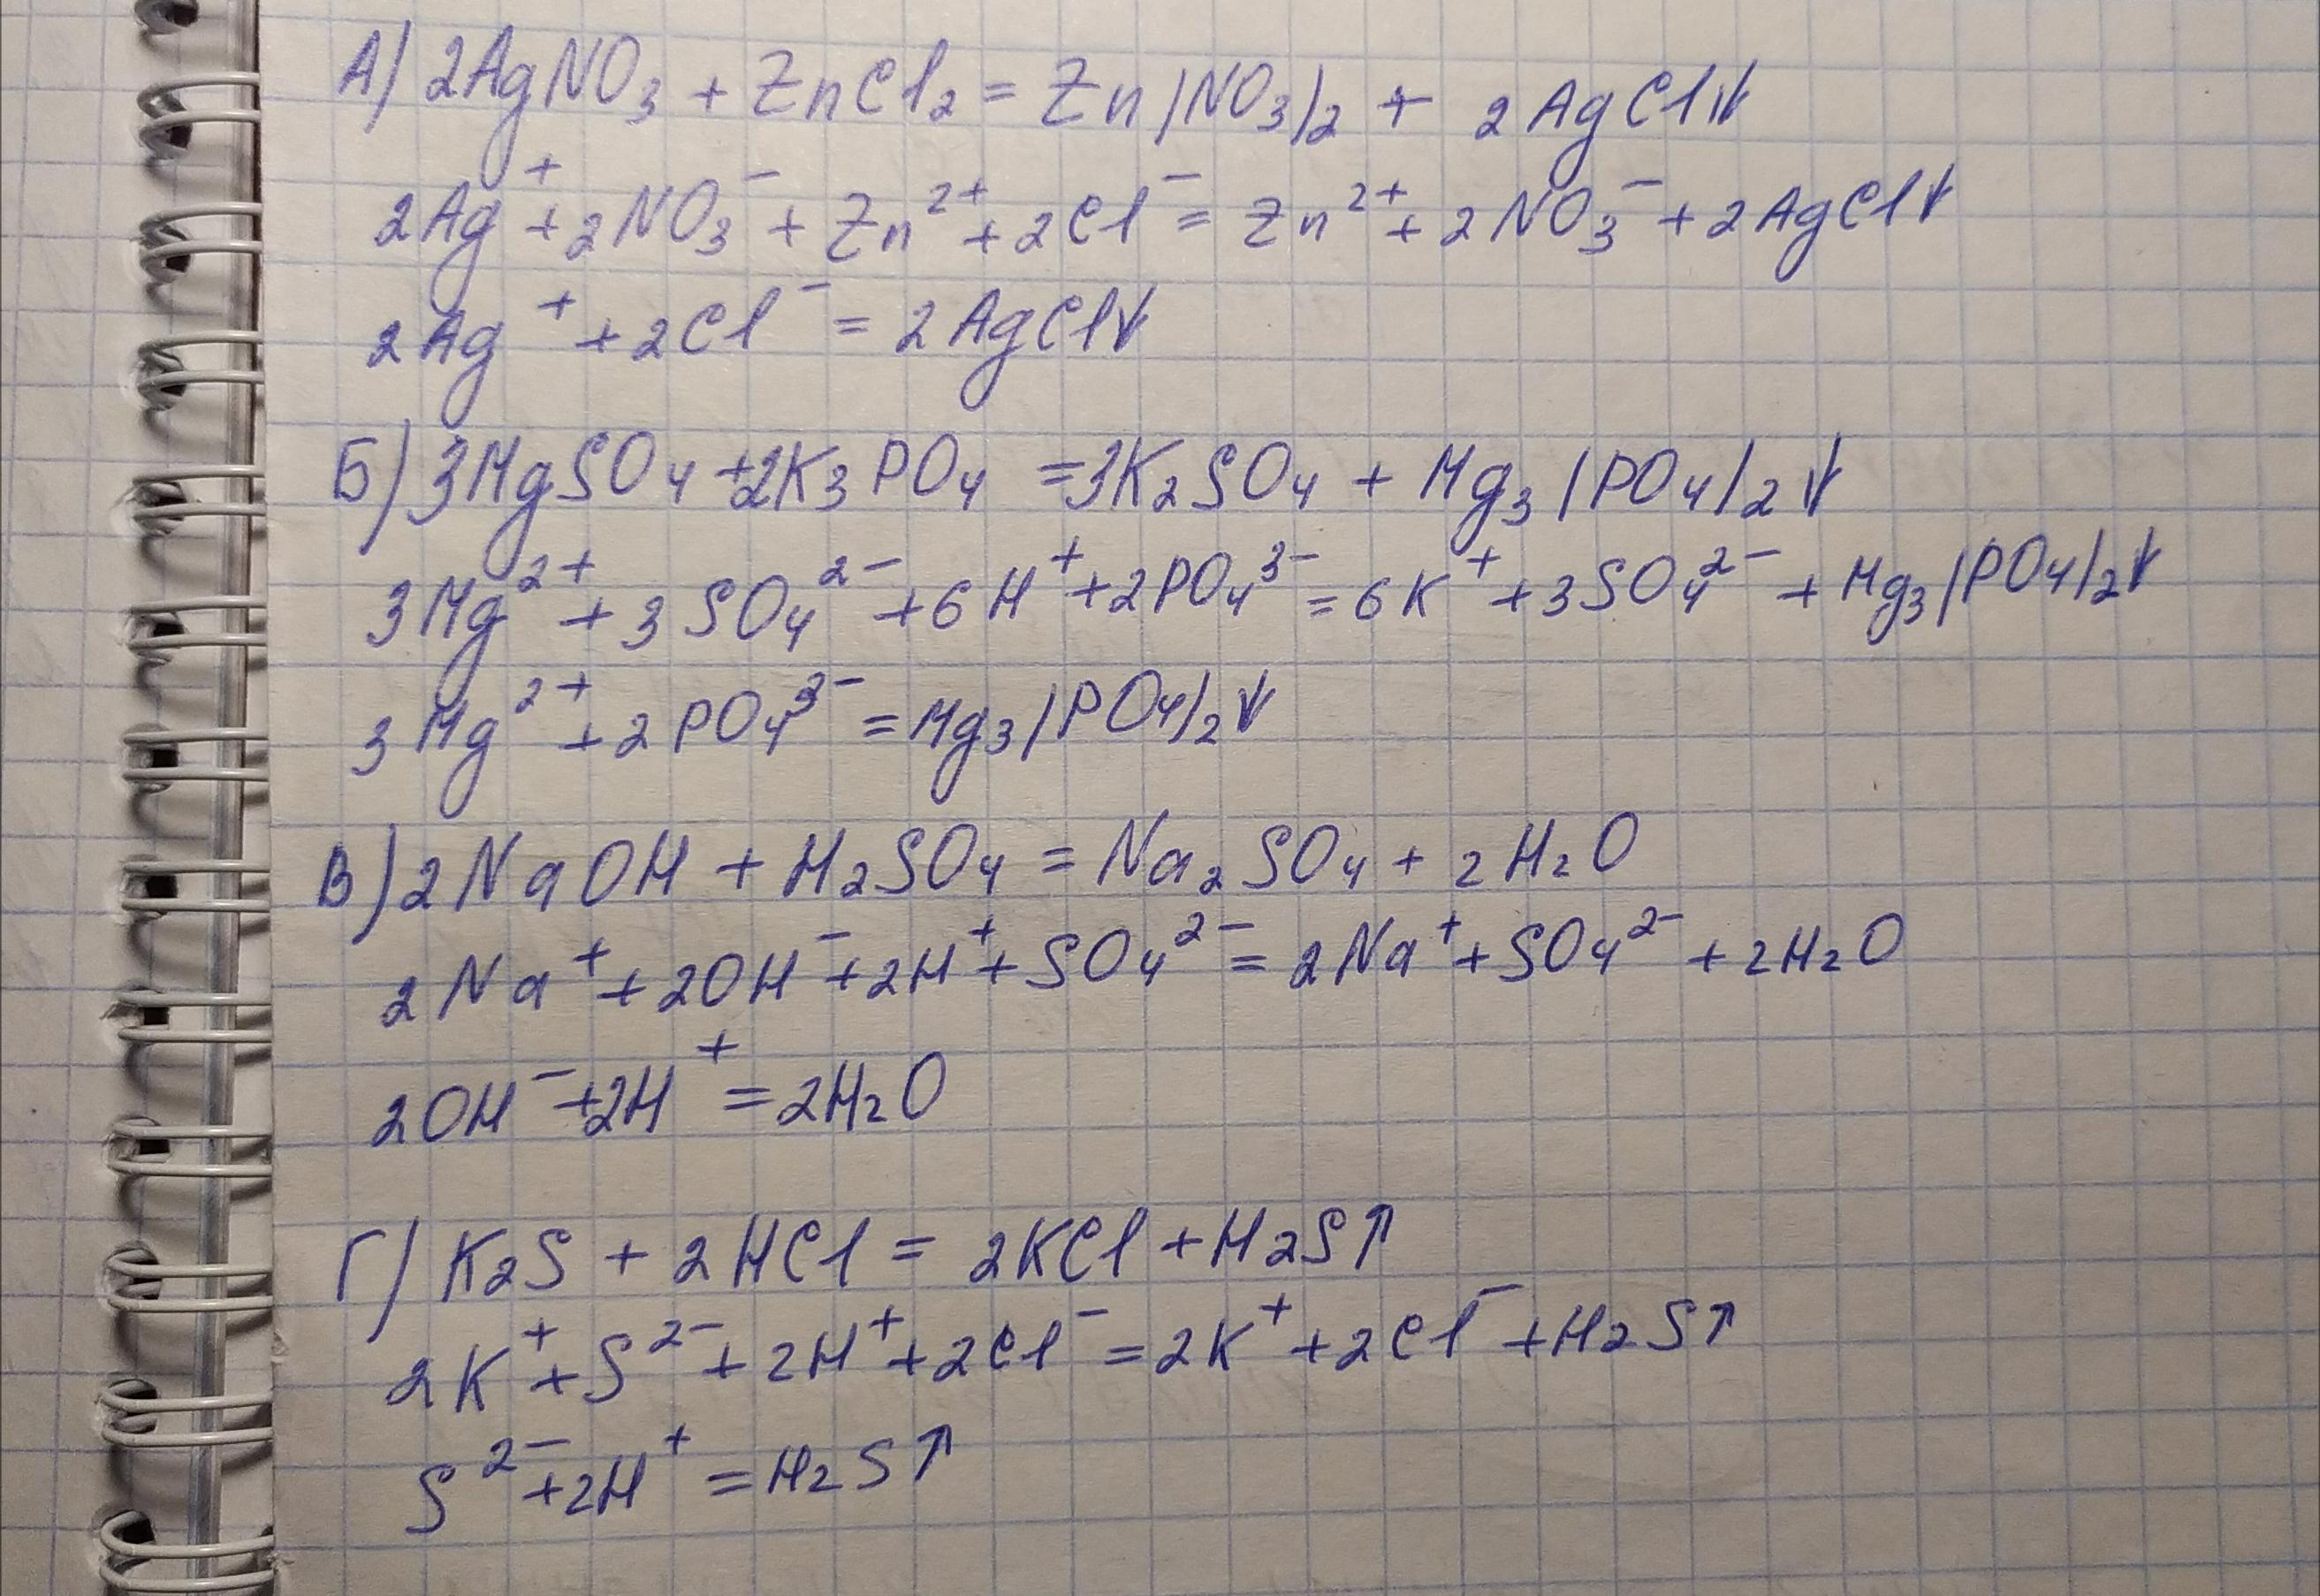 А) 2AgNO₃ + ZnCl₂ = Zn(NO₃)₂ + 2AgCl↓
2Ag⁺ + 2NO₃⁻ + Zn²⁺ + 2Cl⁻ = Zn²⁺ + 2NO₃⁻ + 2AgCl↓
2Ag⁺ + 2Cl⁻ = 2AgCl↓
Б) 3MgSO₄ + 2K₃PO₄ = 3K₂SO₄ + Mg₃(PO₄)₂↓
3Mg²⁺ + 3SO₄²⁻ + 6H⁺ + 2PO₄³⁻ = 6K⁺ + 3SO₄²⁻ + Mg₃(PO₄)₂↓
3Mg²⁺ + 2PO₄³⁻ = Mg₃(PO₄)₂↓
В) 2NaOH + H₂SO₄ = Na₂SO₄ + 2H₂O
2Na⁺ + 2OH⁻ + 2H⁺ + SO₄²⁻ = 2Na⁺ + SO₄²⁻ + 2H₂O
2OH⁻ + 2H⁺ = 2H₂O
Г) K₂S + 2HCl = 2KCl + H₂S↑
2K⁺ + S²⁻ + 2H⁺ + 2Cl⁻ = 2K⁺ + 2Cl⁻ + H₂S↑
S²⁻ + 2H⁺ = H₂S↑